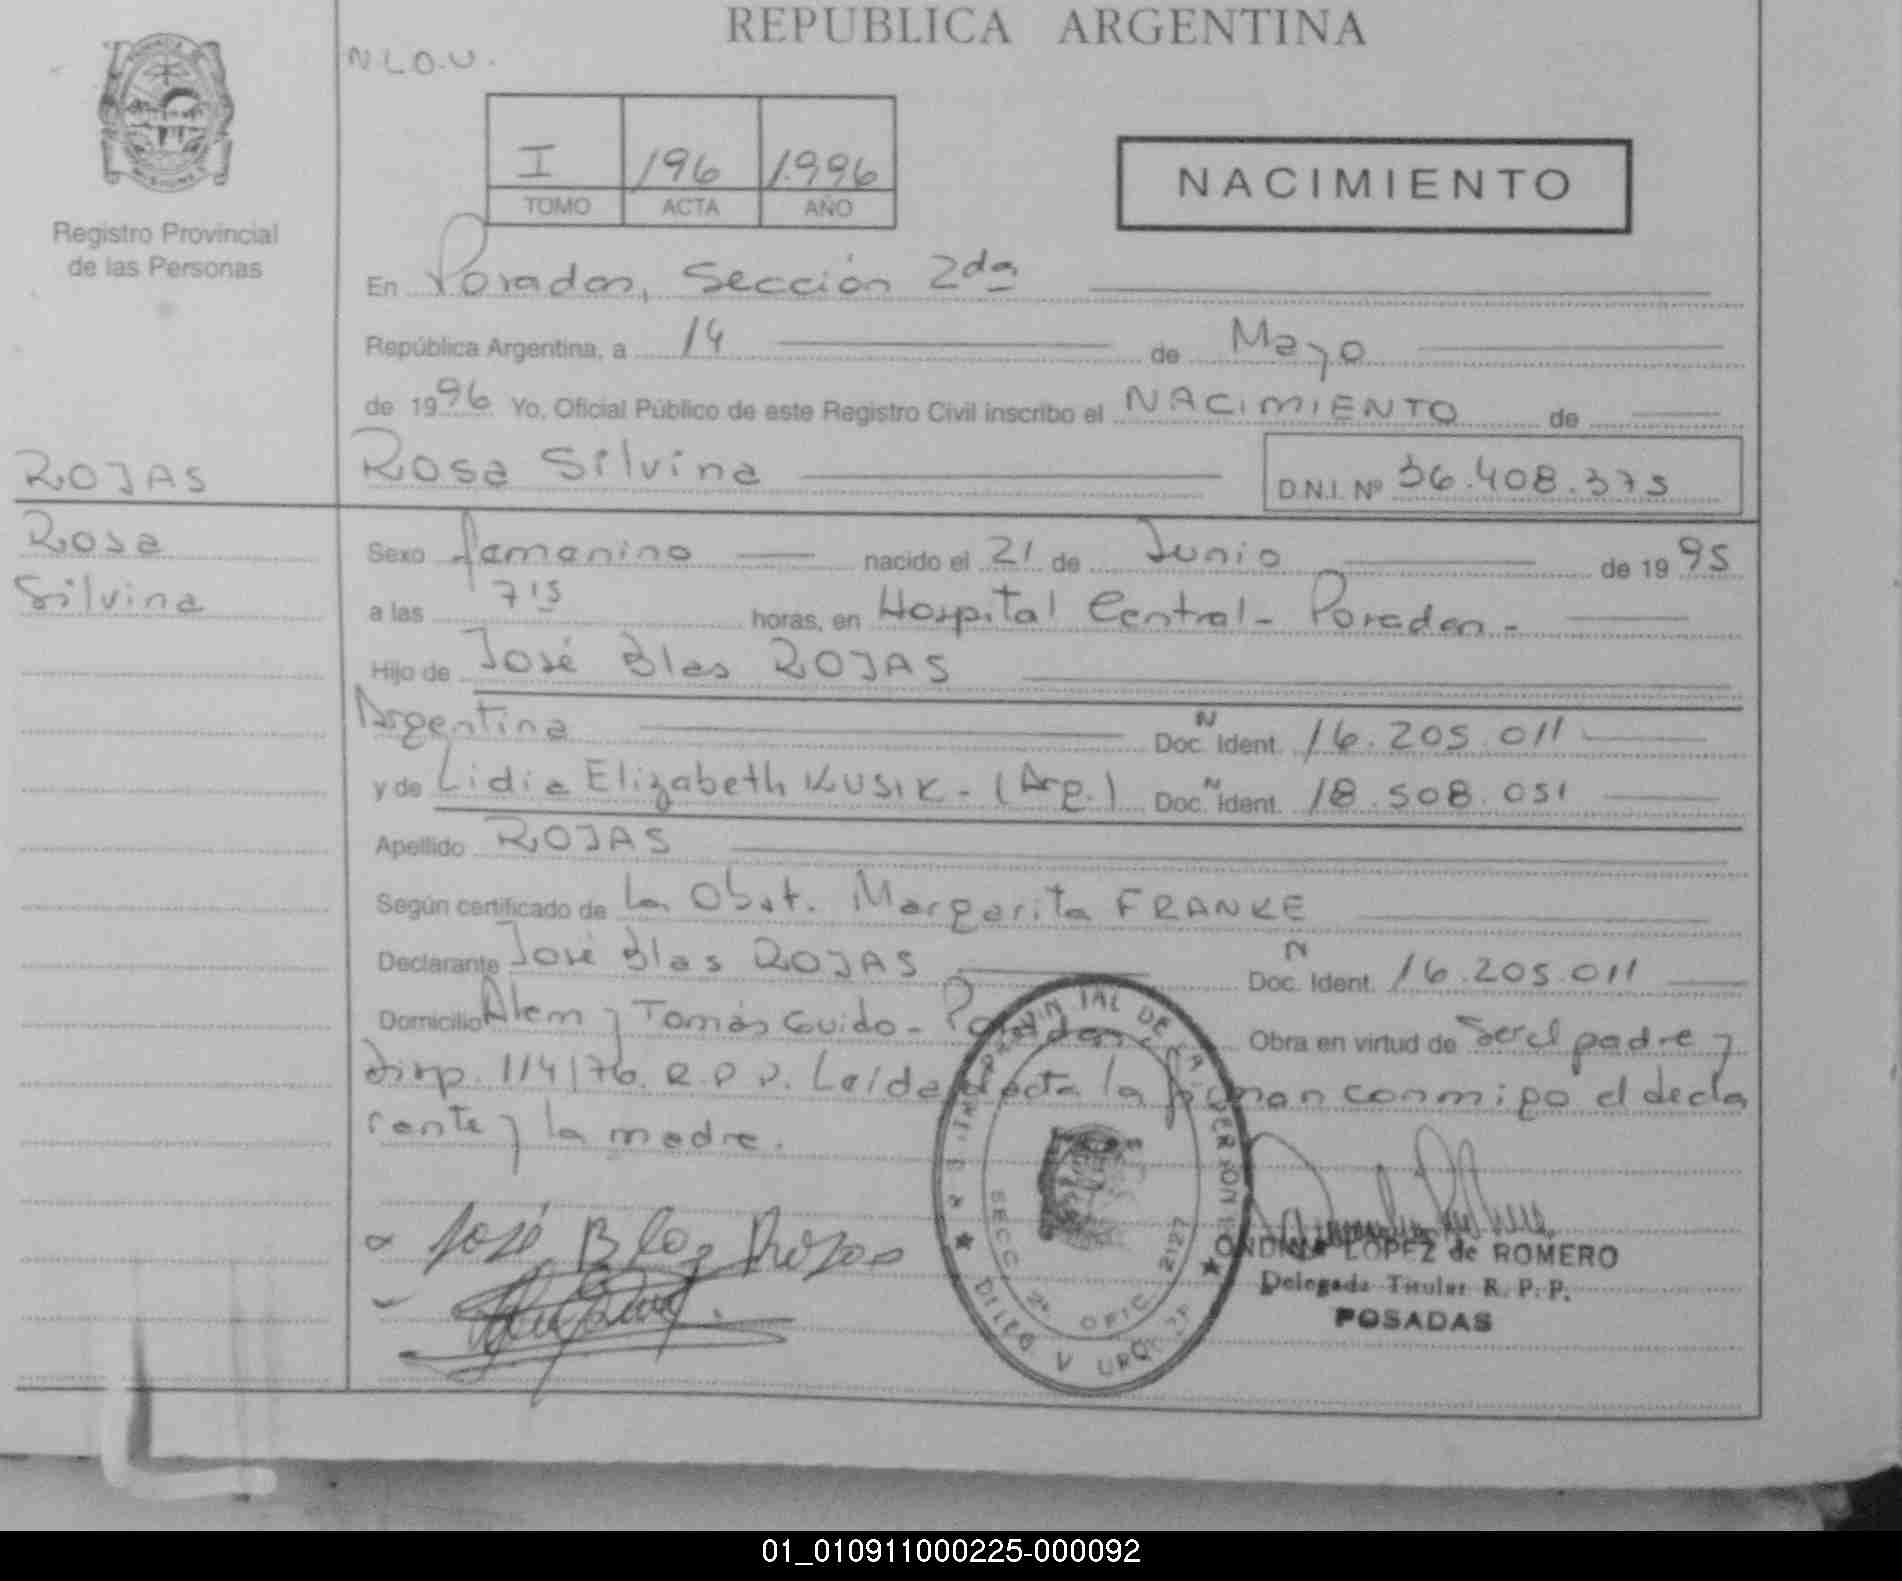 REPUBLICA ARGENTINA
N.L.O.U.
I 196 1.996
TOMO ACTA AÑO
NACIMIENTO
MISIONES
Registro Provincial
de las Personas
En Posadas, Sección 2da
República Argentina, a 14 de Mayo
de 1996 Yo, Oficial Público de este Registro Civil inscribo el NACIMIENTO de
ROJAS
Rosa Silvina
D.N.I. Nº 36.408.375
Rosa
Silvina
Sexo femenino nacido el 21 de Junio de 1995
a las 7 15 horas, en Hospital Central - Posadas -
Hijo de José Blas ROJAS
Argentina Doc. N Ident. 16.205.011
y de Lidia Elizabeth KUSIK - (Arg.) Doc. N Ident. 18.508.051
Apellido ROJAS
Según certificado de La Obst. Margarita FRANKE
Declarante José Blas ROJAS Doc. N Ident. 16.205.011
Domicilio Alem y Tomás Guido - Posadas - Obra en virtud de Ser el padre y
Disp. 114/76. R.P.P. Leída el acta la firman conmigo el decla
rante y la madre.
José Blas Rojas
SECC. 2ª OFIC. 2127
LOPEZ de ROMERO
Delegada Titular R. P. P.
POSADAS
01_010911000225-000092